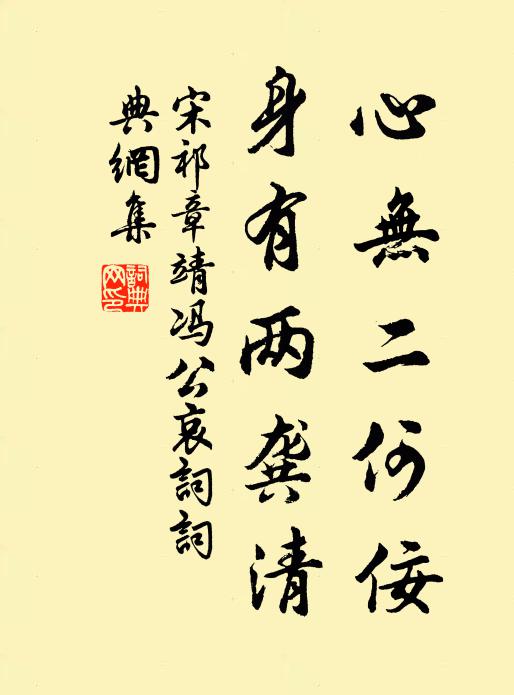 心無二何佞
身有两龔清
宋祁章靖冯公哀詞詞
典網集
詞典网印